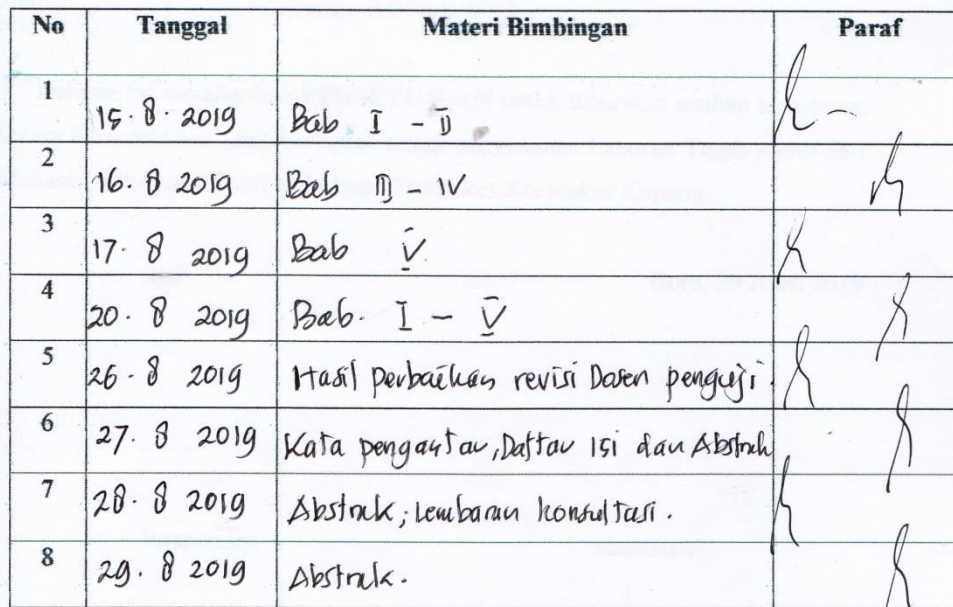 No Tanggal Materi Bimbingan Paraf
1 15. 8. 2019 Bab I - II
2 16. 8 2019 Bab III - IV
3 17. 8 2019 Bab V
4 20. 8 2019 Bab. I - V
5 26. 8 2019 Hasil perbaikan revisi Dosen penguji.
6 27. 8 2019 Kata pengantar, Daftar Isi dan Abstrak
7 28. 8 2019 Abstrak, lembaran konsultasi.
8 29. 8 2019 Abstrak.